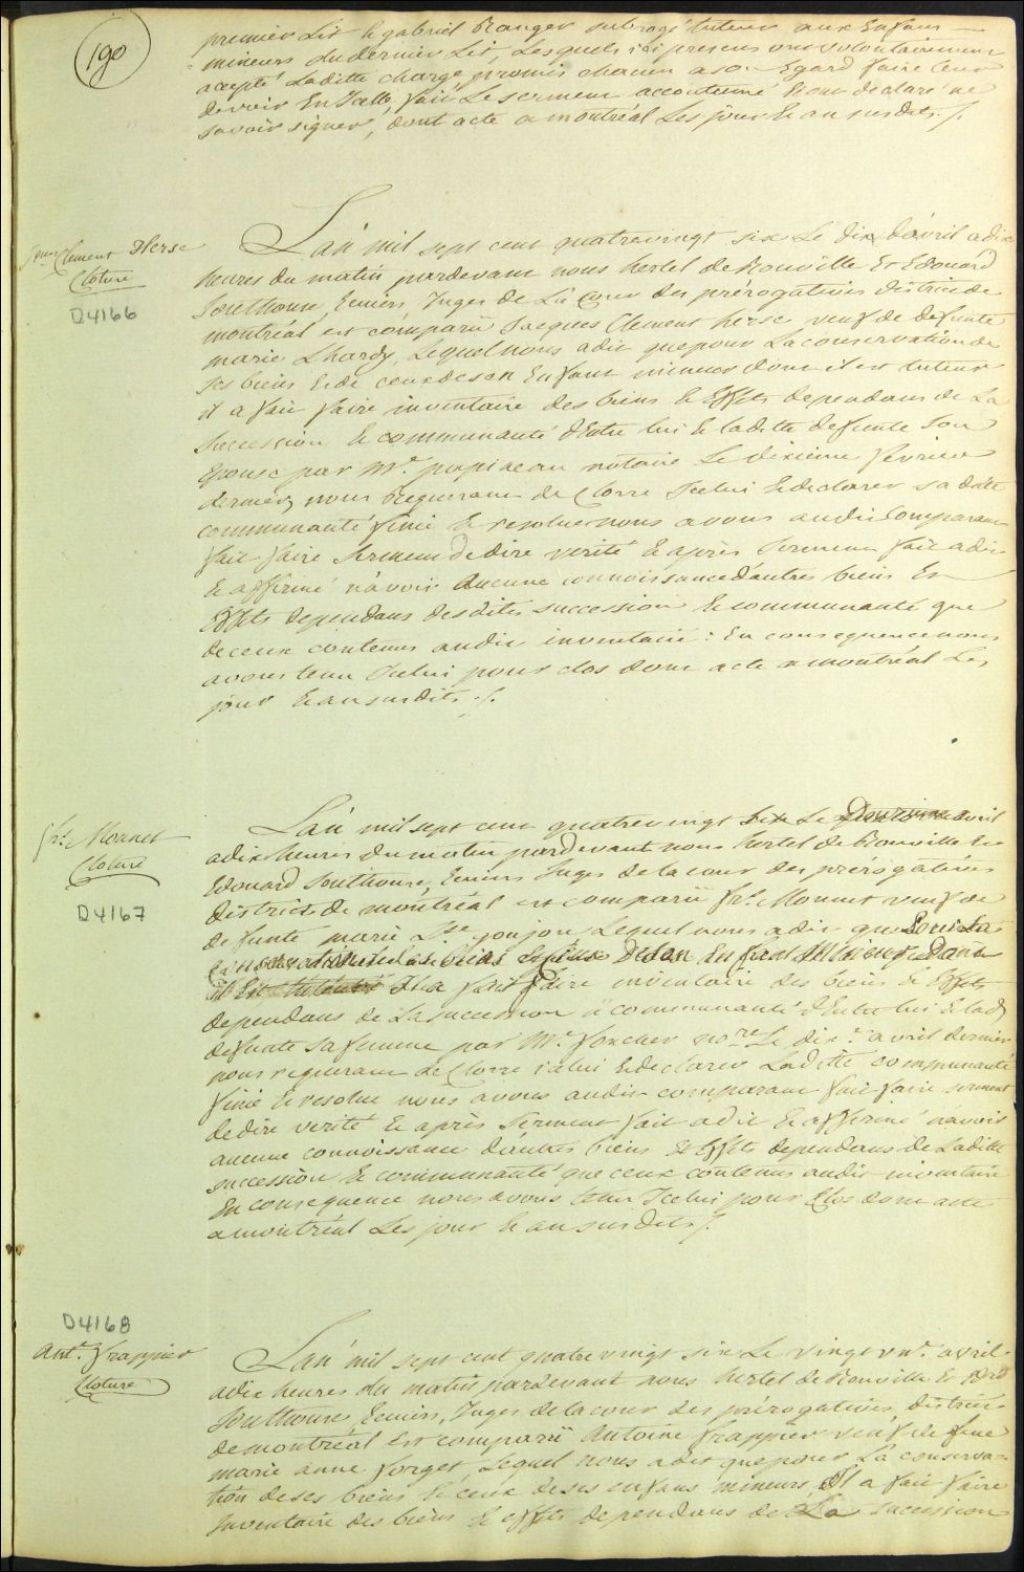 190
premier Lit & gabriel Ranger subrogé tuteur aux Enfans
mineurs du dernier Lit, Lesquels ici presens ont volontairement
accepté Laditte charge promis chacun a son Egard faire leur
devoir En Icelle, fait Le serment accoutumé & ont declaré ne
savoir signer, dont acte a montréal Les jour & an susdits ./.
Clement Herse
Cloture
D4166
L'an mil sept cent quatrevingt six Le dix d'avril a dix
heures du matin pardevant nous hertel de Rouville Et Edouard
Southouse, Ecuiers Juges de La Cour des prérogatives district de
montréal est comparû Jacques Clement herse veuf de defunte
marie Lhardy, Lequel nous a dit que pour La conservation de
ses biens & de ceux de son Enfant mineur dont il est tuteur
il a fait faire inventaire des biens & Effets dependans de La
succession & communauté d'Entre lui & laditte defunte son
Epouse par Mr. papineau notaire Le dixieme fevrier
dernier, nous requerant de Clorre Icelui & declarer sa ditte
communauté finie & resolue nous avons audit Comparant
fait faire serment de dire verité & après serment fait a dit
& affirmé n'avoir Aucune connoissance d'autres biens Et
Effets dependans desdites succession & communauté que
de ceux contenus audit inventaire : En consequence nous
avons tenu Icelui pour clos dont acte a montréal Les
jour & an susdits ./.
fr. Monnet
Cloture
D4167
L'an mil sept cent quatrevingt six Le avril
a dix heures du matin pardevant nous hertel de Rouville &
Edouard Southouse, Ecuiers Juges de la cour des prérogatives
district de montréal est comparû fr. Monnet veuf de
defunte marie Lequel nous a dit que Pour La
Conservation de ses biens & Ceux De son Enfant Mineur Dont
il Est il a fait faire inventaire des biens & Effets
dependans de La succession & communauté d'Entre lui & lad
defunte sa femme par Mr. foucher nore. Le dix. avril dernier
nous requerant de Clorre icelui & declarer Laditte communauté
finie & resolue nous avons audit comparant fait faire serment
de dire verité & après serment fait a dit & affirmé n'avoir
aucune connoissance d'autres biens & Effets dependans de Laditte
succession & communauté que ceux contenus audit inventaire
En consequence nous avons tenu Icelui pour Clos dont acte
a montréal Les jour & an susdits ./.
D4168
Ant. frappier
Cloture
L'an mil sept cent quatrevingt six Le vingt un. avril
a dix heures du matin pardevant nous hertel de Rouville & Ed
Southouse Ecuiers, Juges de la cour des prérogatives, district
de montréal Est comparû Antoine frappier veuf de feue
marie anne forget, Lequel nous a dit que pour La conserva
tion de ses biens & ceux de ses enfans mineurs Il a fait faire
Inventaire des biens & effets dependans de La succession